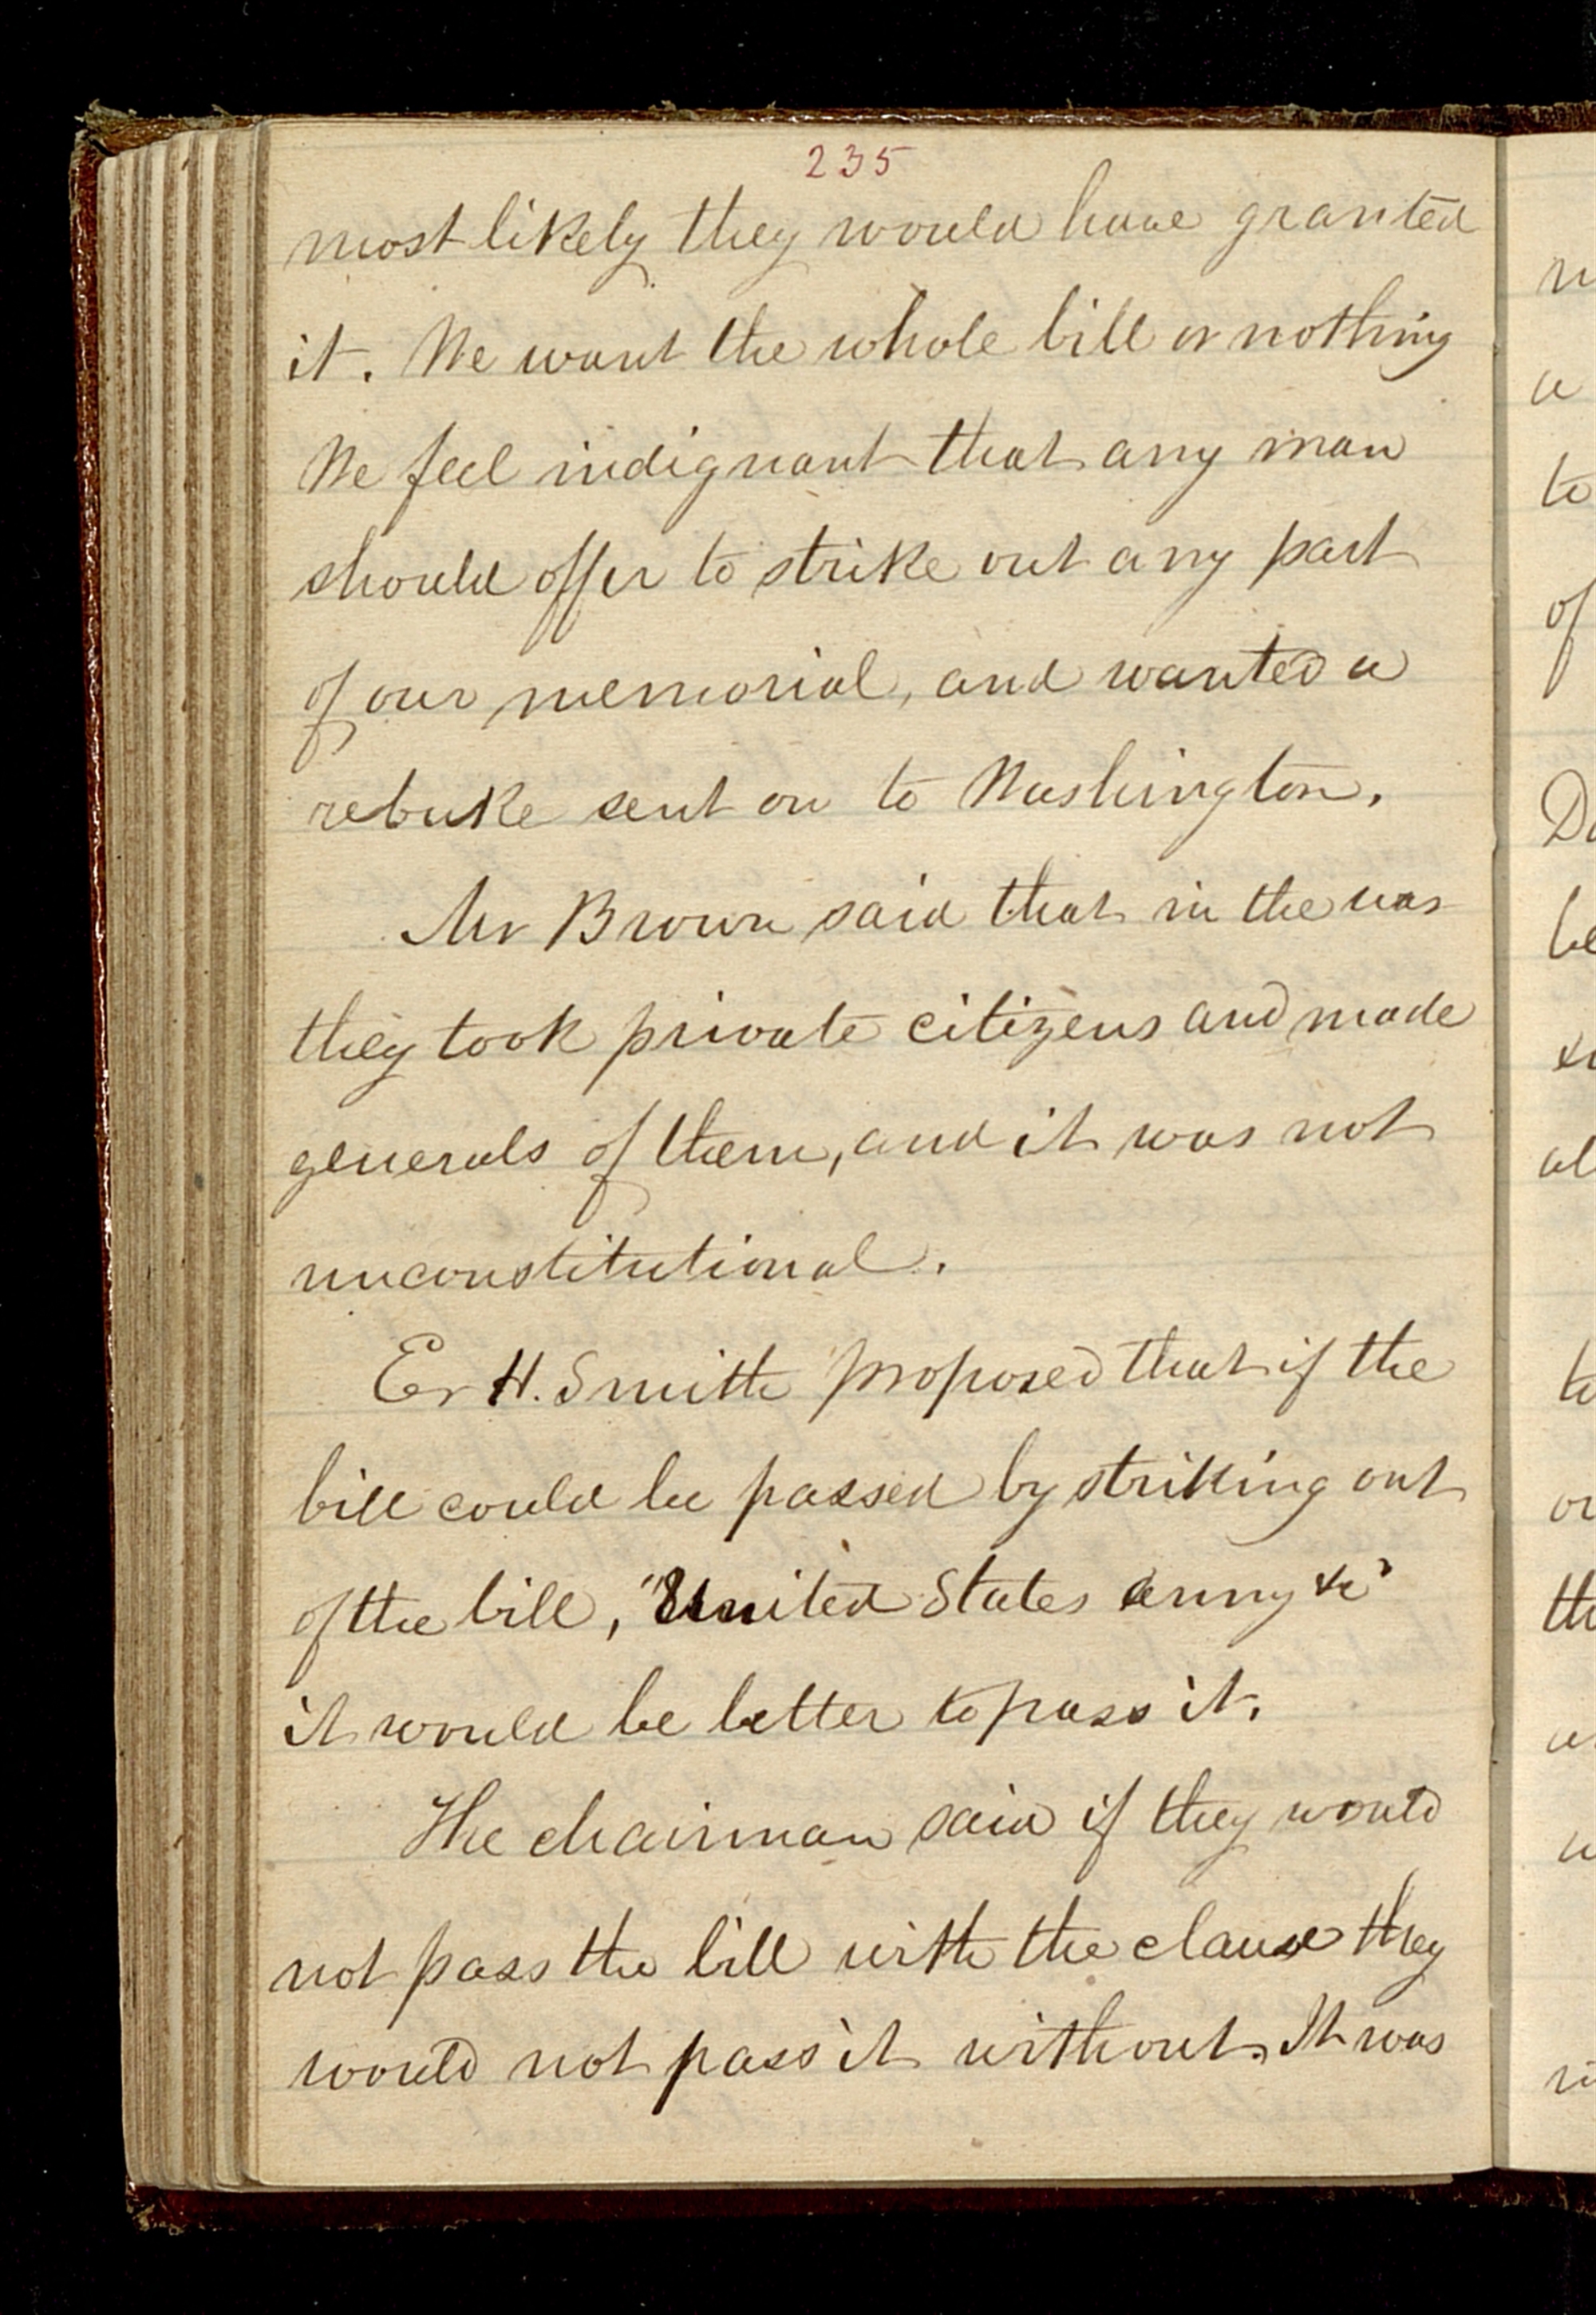 235
most likely they would have granted
it. We want the whole bill or nothing
We feel indignant that any man
should offer to strike out any part
of our memorial, and wanted a
rebuke sent on to Washington.
Mr Brown said that in the war
they took private citizens and made
generals of them, and it was not
unconstitutional.
Er H. Smith proposed that if the
bill could be passed by striking out
of the bill, "United States army &c"
it would be better to pass it.
The chairman said if they would
not pass the bill with the clause they
would not pass it without. It was